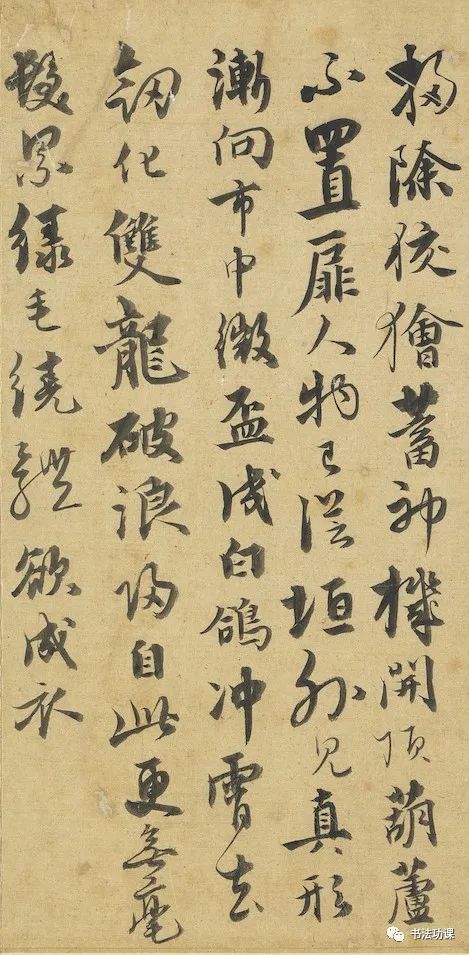 掃除狡獪蓄神機開頂葫蘆
不置扉人物已從垣外見真形
漸向市中微盃成白鴿冲霄去
釼化雙龍破浪歸自此更無毫
髮累綠毛繞體欲成衣
书法功课